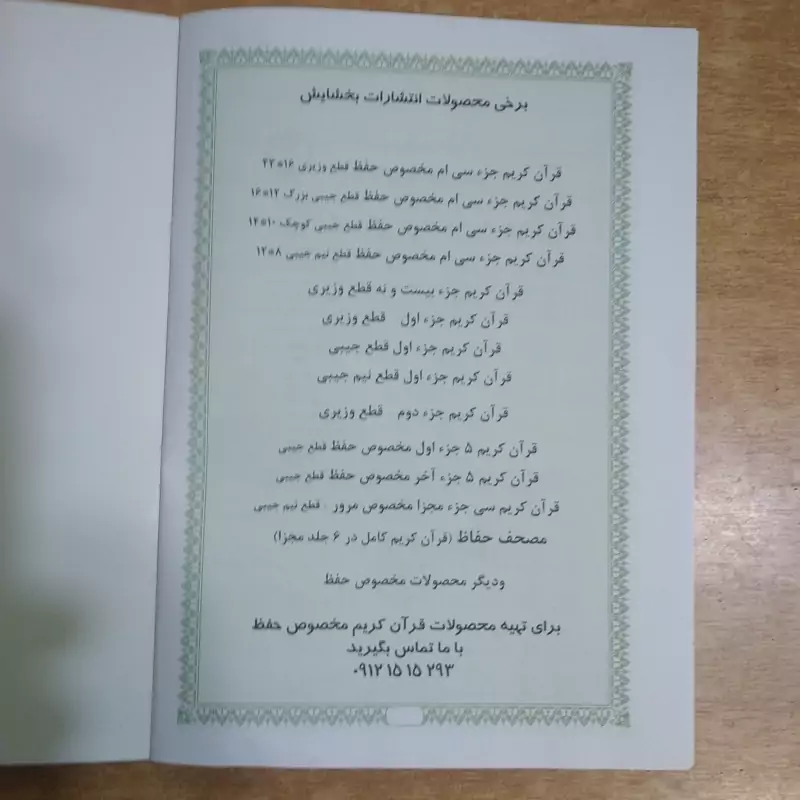 برخی محصولات انتشارات بخشایش
قرآن کریم جزء سی ام مخصوص حفظ قطع وزیری ۱۶*۲۲
قرآن کریم جزء سی ام مخصوص حفظ قطع جیبی بزرگ ۱۲*۱۶
قرآن کریم جزء سی ام مخصوص حفظ قطع جیبی کوچک ۱۰*۱۴
قرآن کریم جزء سی ام مخصوص حفظ قطع نیم جیبی ۸*۱۲
قرآن کریم جزء بیست و نه قطع وزیری
قرآن کریم جزء اول قطع وزیری
قرآن کریم جزء اول قطع جیبی
قرآن کریم جزء اول قطع نیم جیبی
قرآن کریم جزء دوم قطع وزیری
قرآن کریم ۵ جزء اول مخصوص حفظ قطع جیبی
قرآن کریم ۵ جزء آخر مخصوص حفظ قطع جیبی
قرآن کریم سی جزء مجزا مخصوص مرور . قطع نیم جیبی
مصحف حفاظ (قرآن کریم کامل در ۶ جلد مجزا)
ودیگر محصولات مخصوص حفظ
برای تهیه محصولات قرآن کریم مخصوص حفظ
با ما تماس بگیرید
۰۹۱۲ ۱۵ ۱۵ ۲۹۳